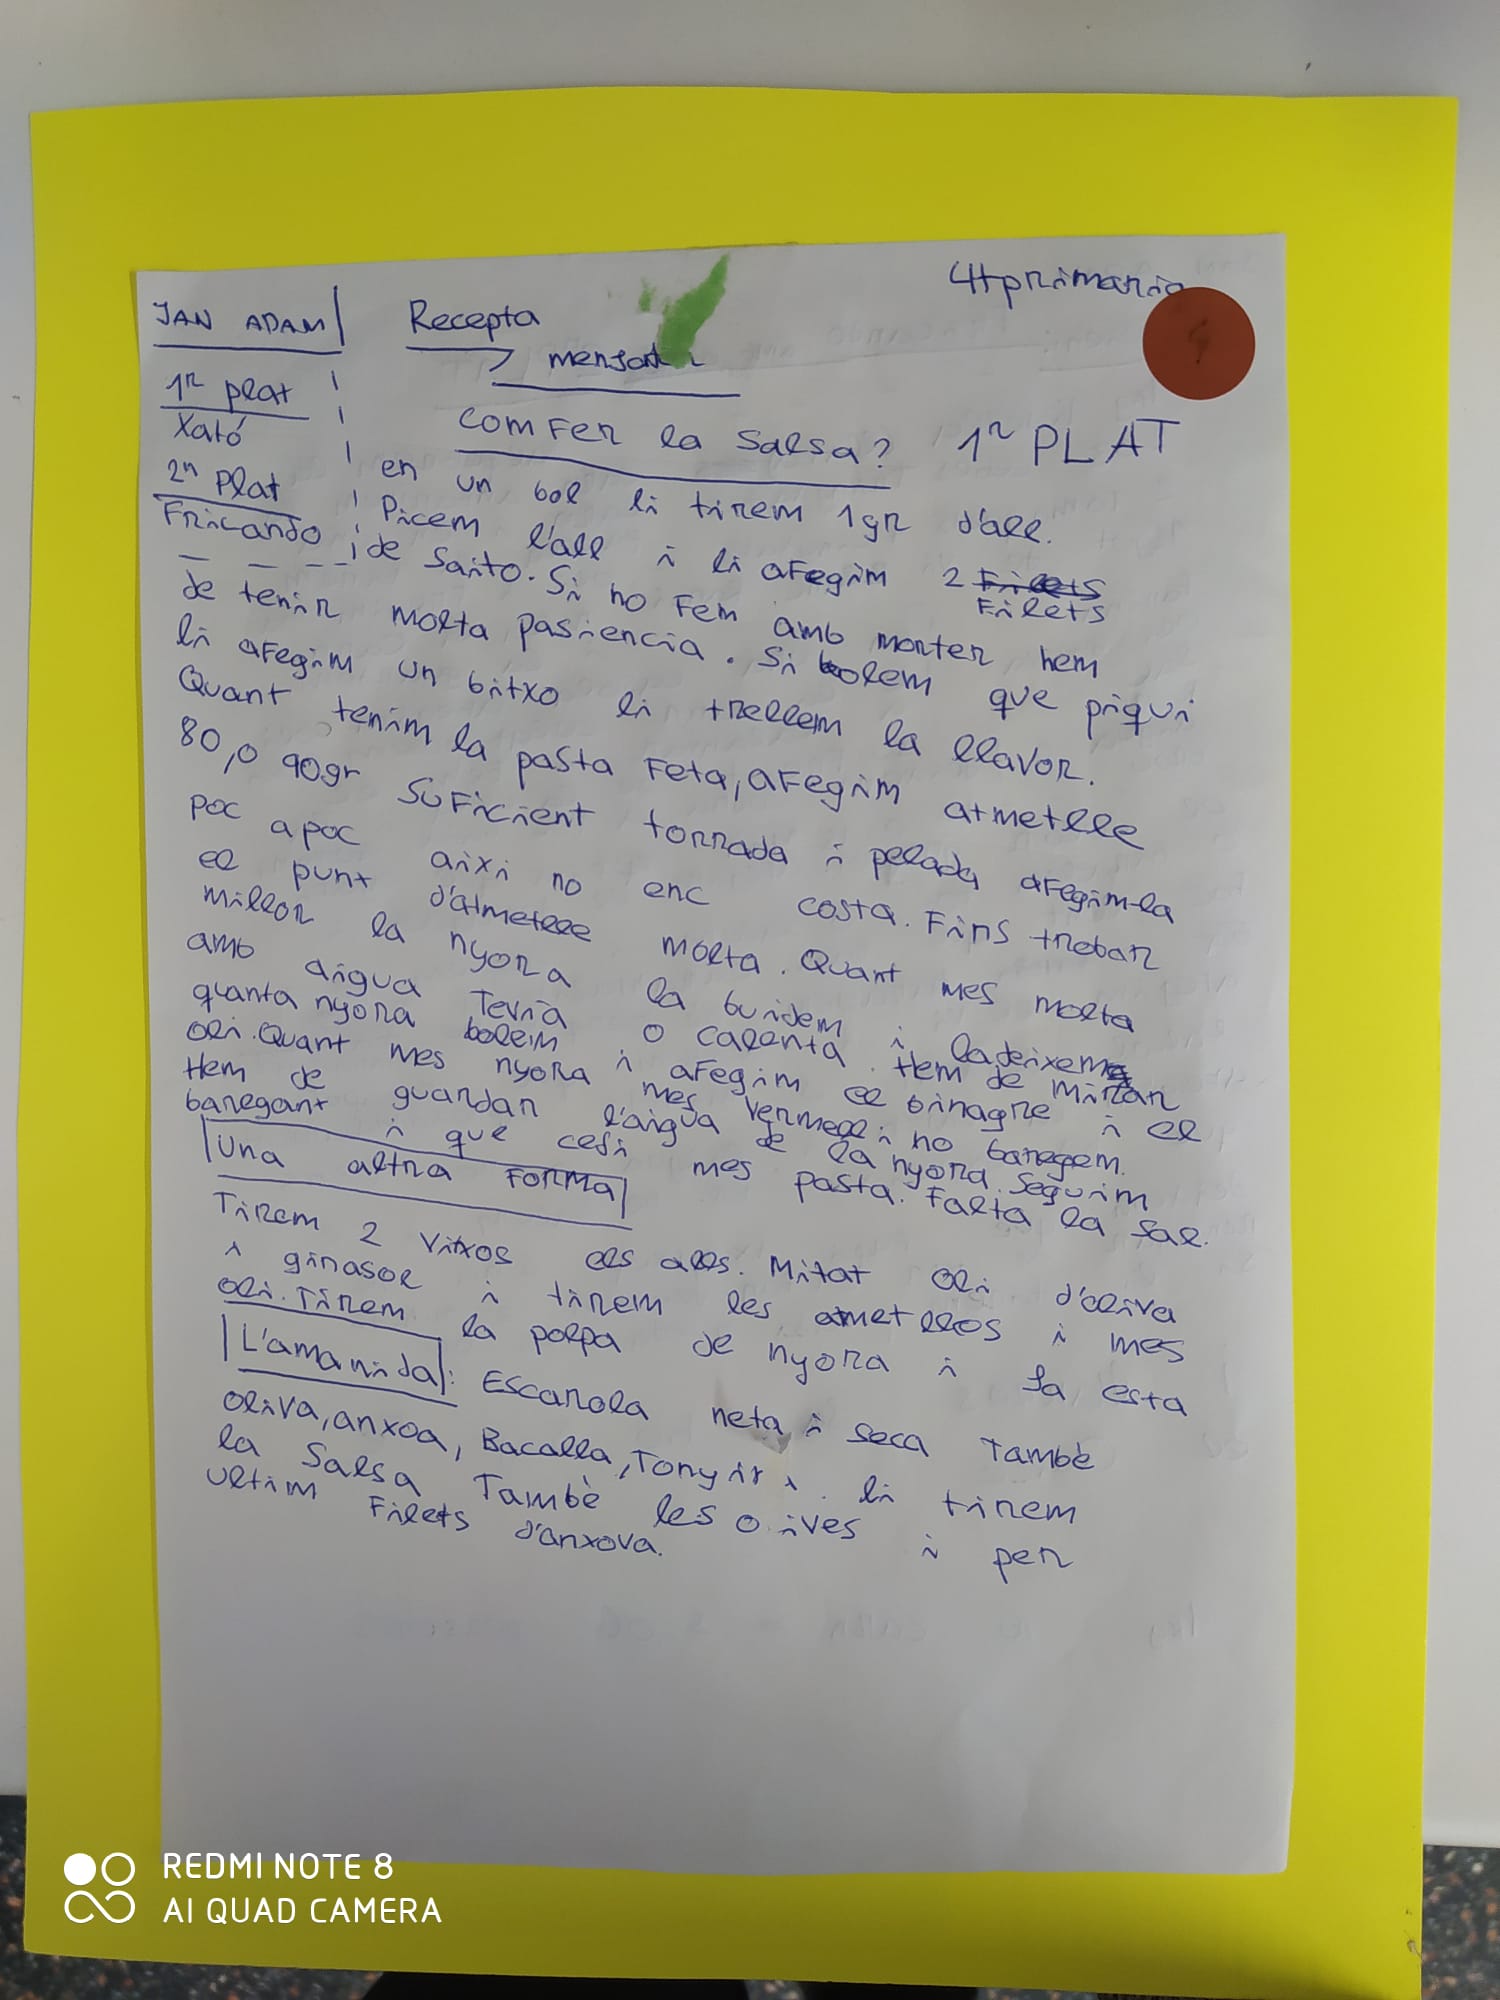 4t primaria
JAN ADAM
Recepta
1r plat
Xató
2n Plat
Fricando
Com Fer la Salsa? 1r PLAT
en un bol li tirem 1gr d'all.
Picem l'all i li aFegim 2 Filets
Filets
de Saito. Si ho Fem amb morter hem
de tenir molta pasiencia. Si bolem que piqui
li aFegim un bitxo li trellem la llavor.
Quant tenim la pasta Feta, aFegim atmetlle
80,o 90gr SuFicient torrada i pelada aFegim-la
poc a poc aixi no enc costa. Fins trobar
el punt d'atmetlle molta. Quant mes molta
millor la nyora la buidem i la deixem
amb aigua Tevia o calenta. Hem de mirar
quanta nyora boleim i aFegim el binagre i el
oli. Quant mes nyora mes vermell i no baregem.
Hem de guardar l'aigua de la nyora. Seguim
baregant i que cesi mes pasta. Falta la sal.
Una altra Forma
Tirem 2 Vitxos els alls. Mitat oli d'oliva
i girasol i tirem les ametllos i mes
oli. Tirem la polpa de nyora i Ja esta
L'amanida: Escarola neta i seca Tambè
oliva, anxoa, Bacalla, Tonyir i li tirem
la Salsa Tambè les olives i per
ultim Filets d'anxova.
REDMI NOTE 8
AI QUAD CAMERA